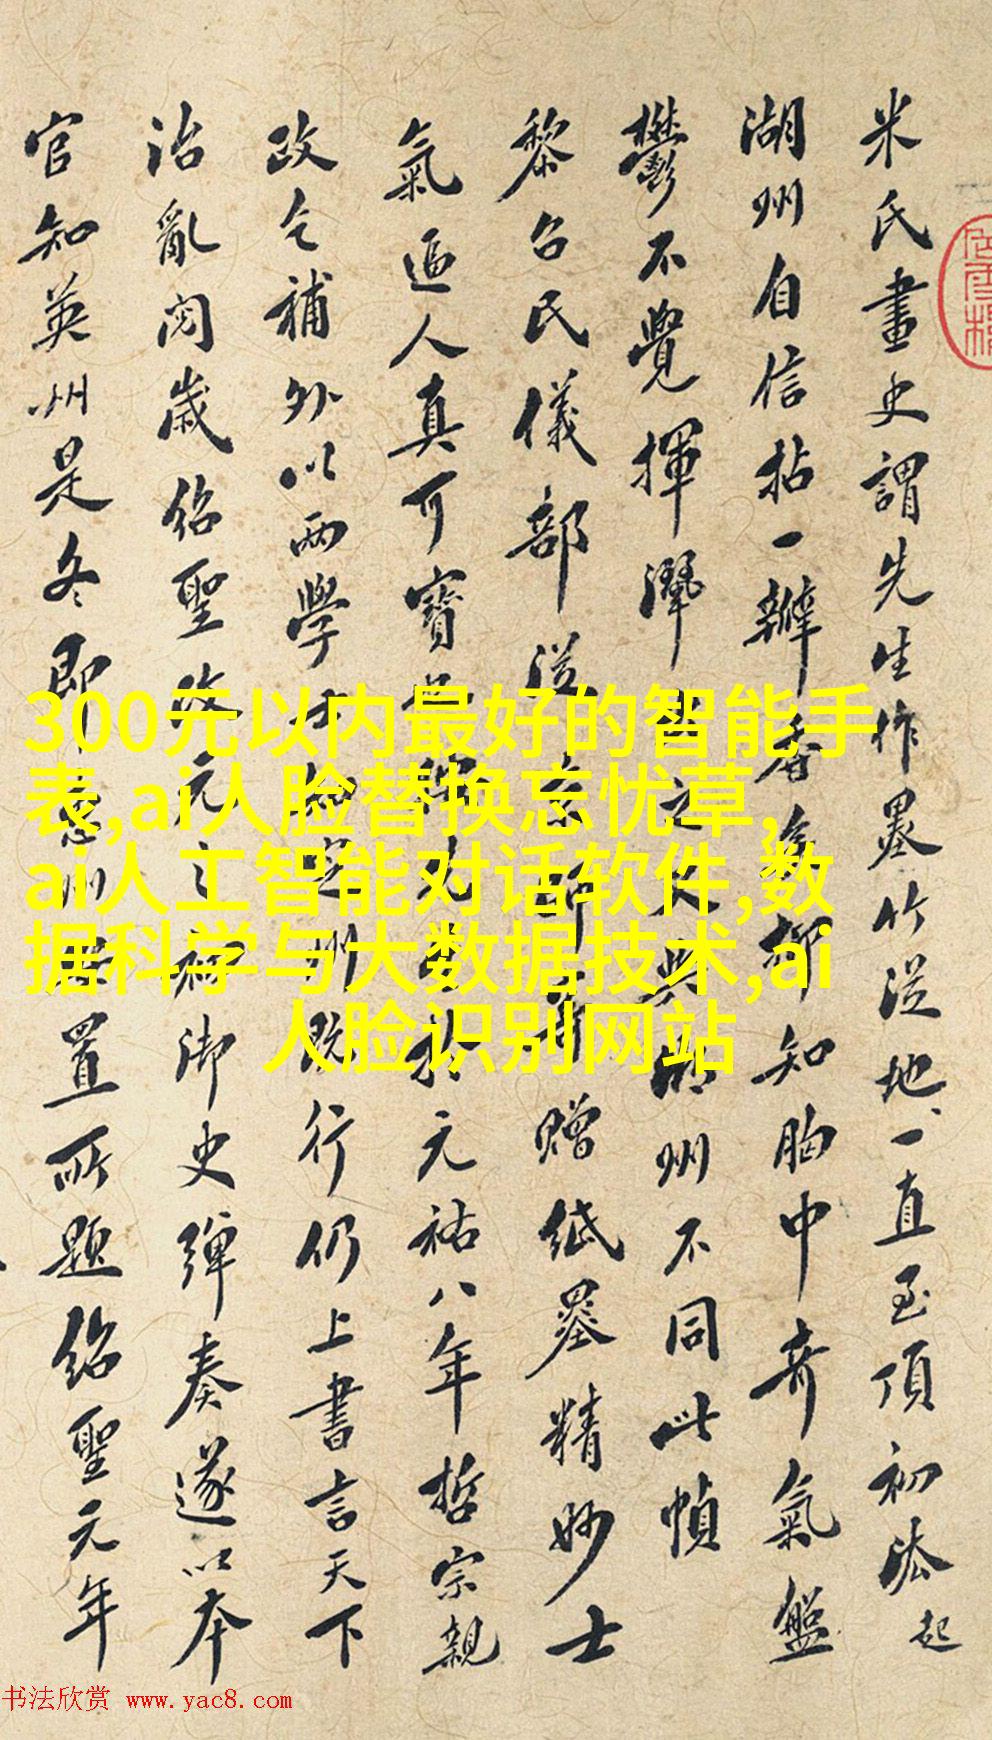 米氏畫史謂先生作墨竹從地一直至頂初法起
湖州自信拈一瓣香矣抑知胸中奇氣盤
鬱不覺揮灑之天與湖州不同此幀
黎召民儀部從京師寄贈紙墨精妙士
氣逼人真可寶於元祐八年哲宗親
政乞補外以兩學士知定州既行仍上書言天下
治亂閱歲紹聖改元之初御史彈奏遂以本
官知英州是冬即惠州置所題紹聖元年
300元以内最好的智能手
表,ai人脸替换忘忧草,
ai人工智能对话软件,数
据科学与大数据技术,ai
人脸识别网站
书法欣赏 www.yac8.com